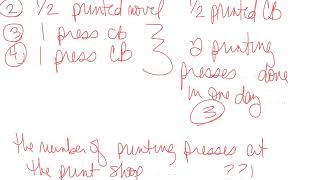 ② 1/2 printed novel 1/2 printed CB
③ 1 press CB
④ 1 press CB
2 printing
presses done
in one day
③
the number of printing presses at
the print shop ... ??1